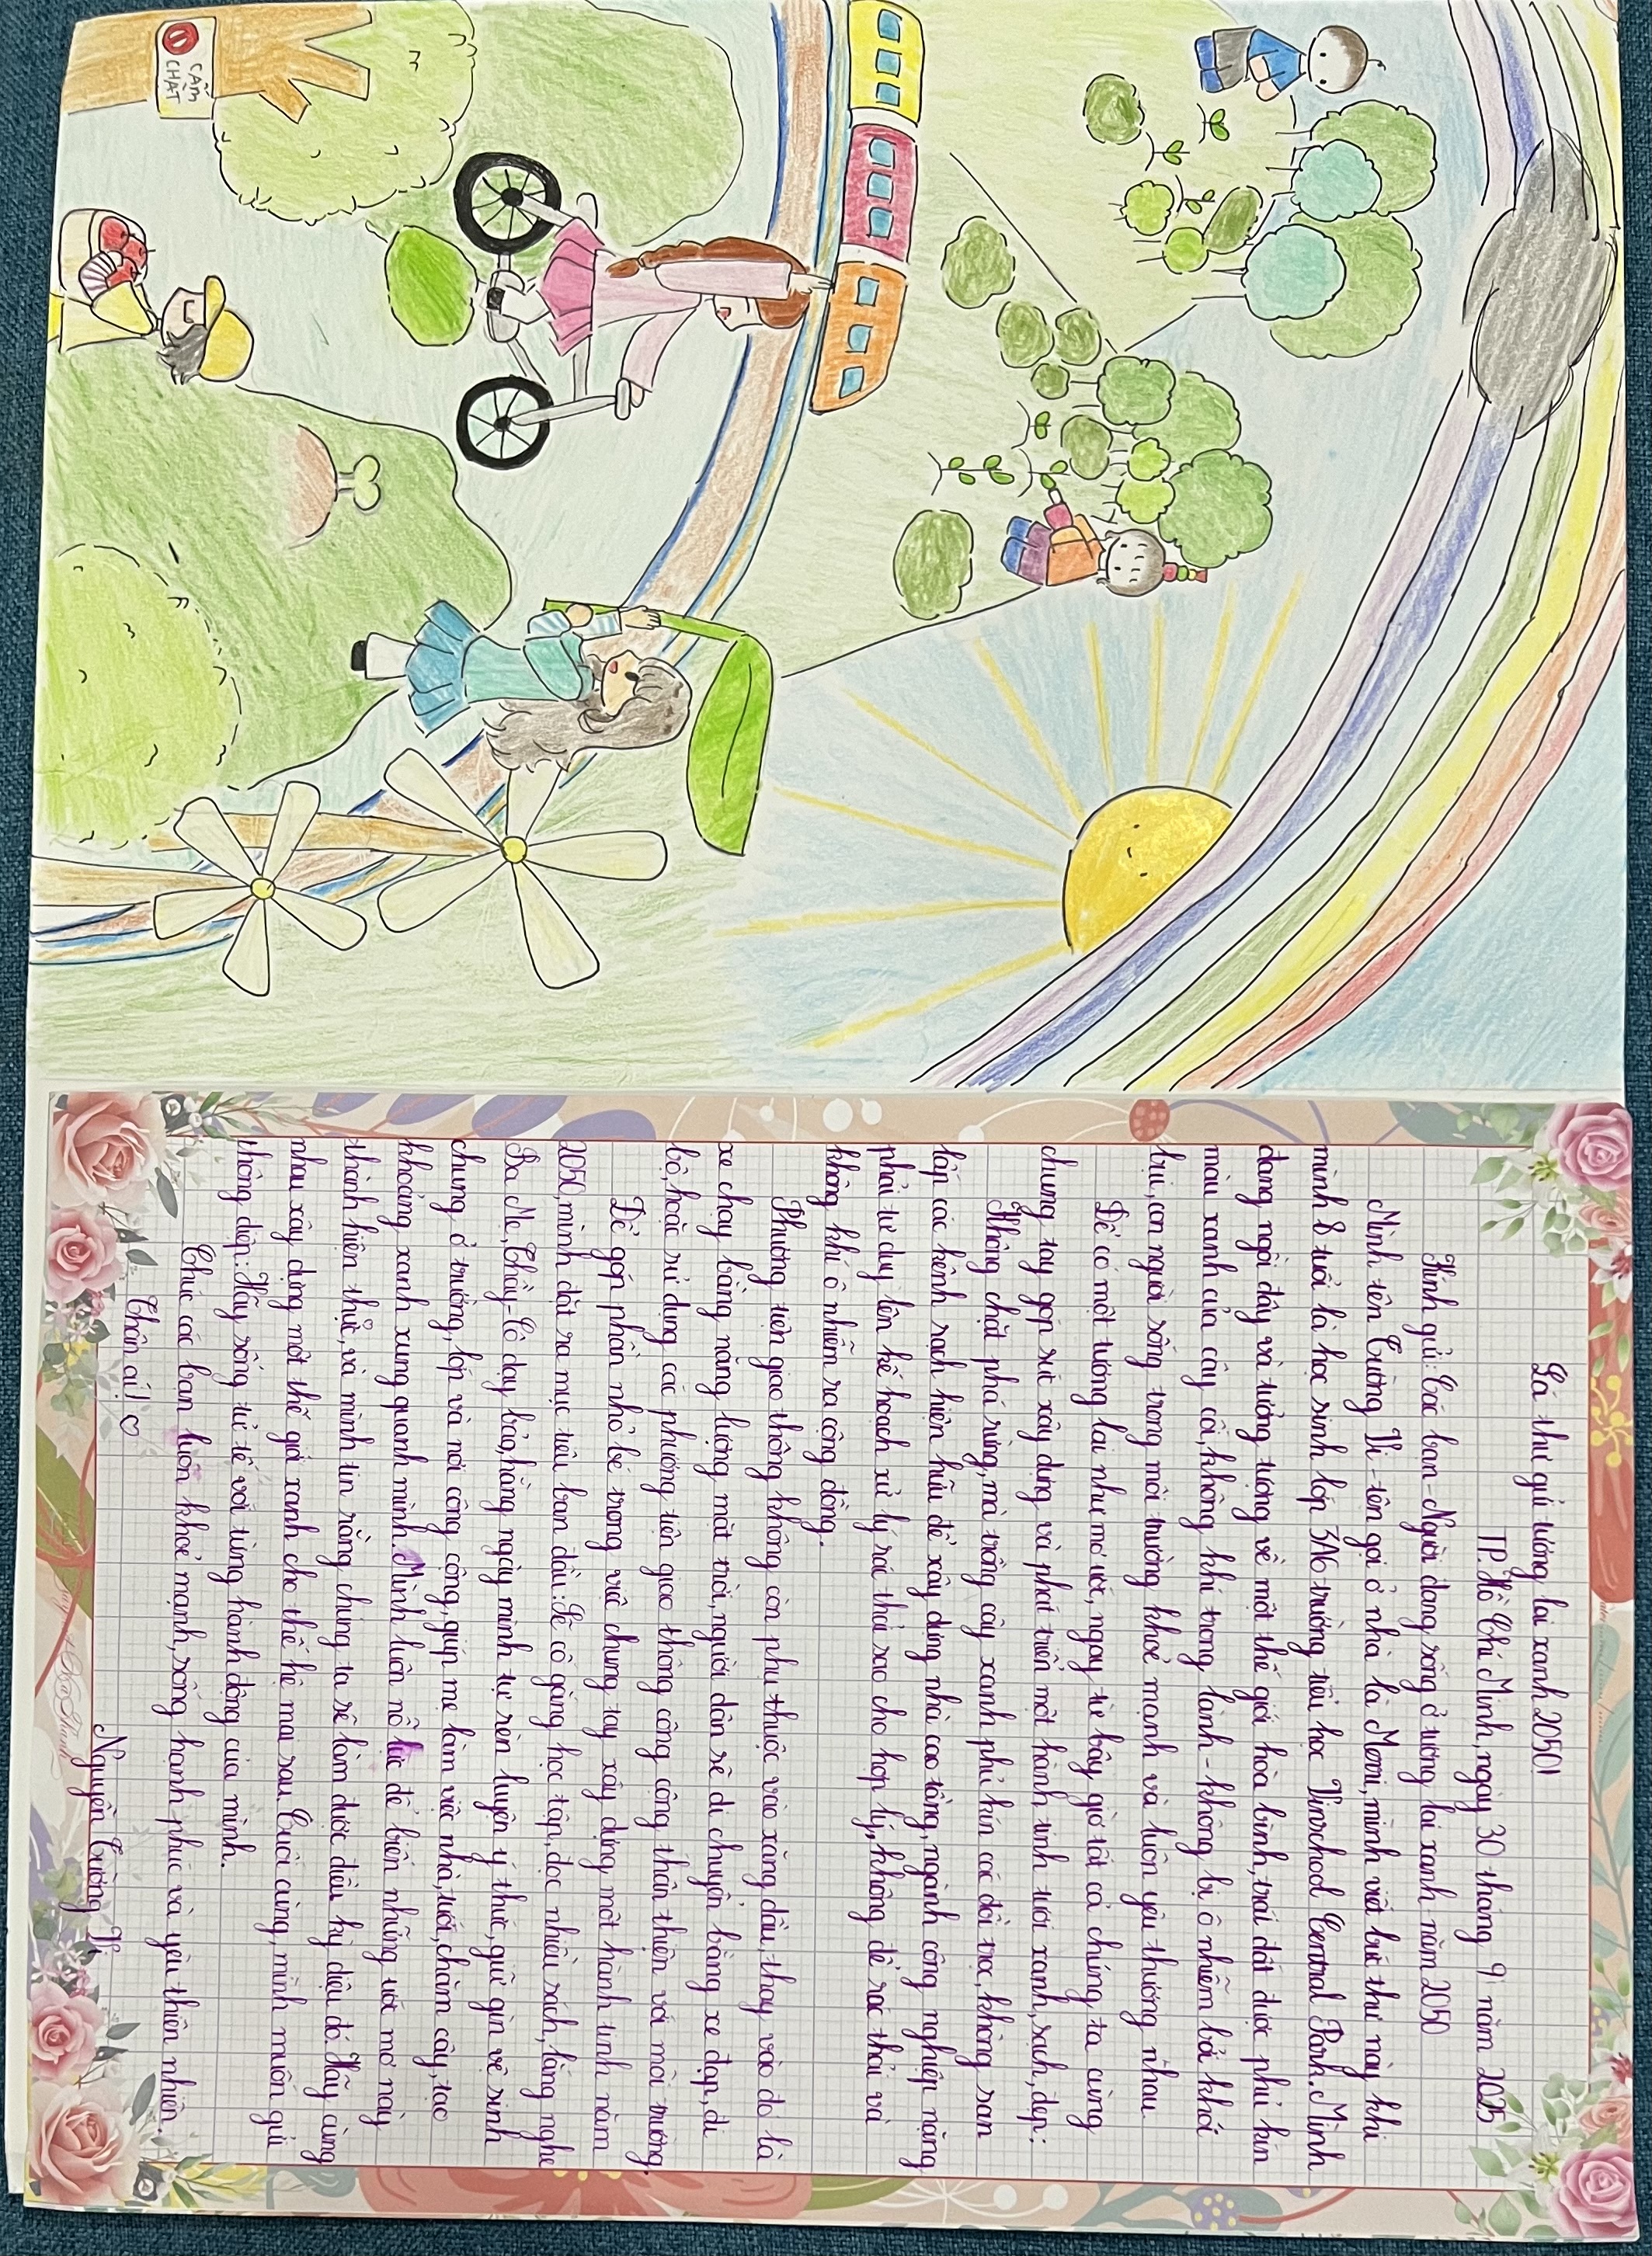 CẤM
CHẶT
Lá thư gửi tương lai xanh 2050!
TP. Hồ Chí Minh, ngày 30 tháng 9 năm 2025
Kính gửi: Các bạn - Người đang sống ở tương lai xanh năm 2050
Mình tên Cường Vi - tên gọi ở nhà là Merri, mình viết bức thư này khi
mình 8 tuổi là học sinh lớp 3A6 trường tiểu học Vinschool Central Park. Mình
đang ngồi đây và tưởng tượng về một thế giới hòa bình, trái đất được phủ kín
màu xanh của cây cối, không khí trong lành - không bị ô nhiễm bởi khói
bụi, con người sống trong môi trường khoẻ mạnh và luôn yêu thương nhau.
Để có một tương lai như mơ ước, ngay từ bây giờ tất cả chúng ta cùng
chung tay góp sức xây dựng và phát triển một hành tinh tươi xanh, sạch, đẹp:
Không chặt phá rừng, mà trồng cây xanh phủ kín các đồi trọc, không san
lấp các kênh rạch hiện hữu để xây dựng nhà cao tầng, ngành công nghiệp nặng
phải tư duy lên kế hoạch xử lý rác thải sao cho hợp lý, không để rác thải và
không khí ô nhiễm ra cộng đồng.
Phương tiện giao thông không còn phụ thuộc vào xăng dầu, thay vào đó là
xe chạy bằng năng lượng mặt trời, người dân sẽ di chuyển bằng xe đạp, đi
bộ, hoặc sử dụng các phương tiện giao thông công cộng thân thiện với môi trường.
Để góp phần nhỏ bé trong việc chung tay xây dựng một hành tinh năm
2050, mình đặt ra mục tiêu ban đầu: Sẽ cố gắng học tập, đọc nhiều sách, lắng nghe
Ba Mẹ, Thầy - Cô dạy bảo, hằng ngày mình tự rèn luyện ý thức, giữ gìn vệ sinh
chung ở trường, lớp và nơi công cộng, giúp mẹ làm việc nhà, tưới, chăm cây, tạo
khoảng xanh xung quanh mình. Mình luôn nỗ lực để biến những ước mơ này
thành hiện thực, và mình tin rằng chúng ta sẽ làm được điều kỳ diệu đó. Hãy cùng
nhau xây dựng một thế giới xanh cho thế hệ mai sau. Cuối cùng, mình muốn gửi
thông điệp: Hãy sống tử tế với từng hành động của mình.
Chúc các bạn luôn khoẻ mạnh, sống hạnh phúc và yêu thiên nhiên.
Thân ái! ♡
Nguyễn Cường Vi